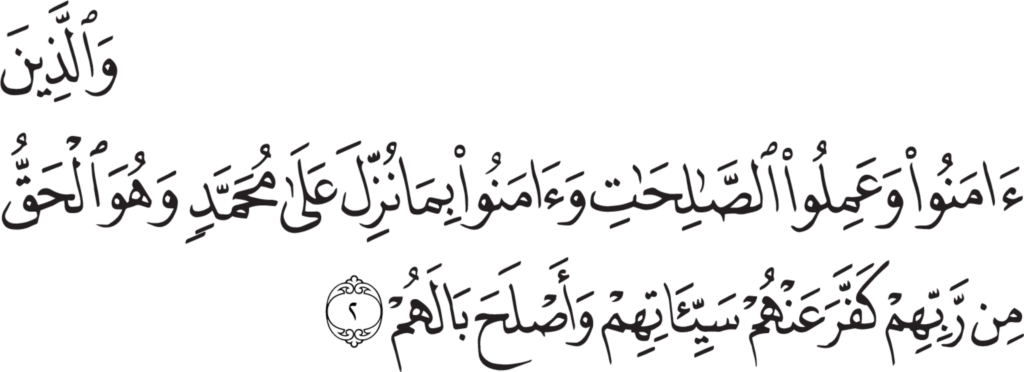 وَٱلَّذِينَ
ءَامَنُوا۟ وَعَمِلُوا۟ ٱلصَّـٰلِحَـٰتِ وَءَامَنُوا۟ بِمَا نُزِّلَ عَلَىٰ مُحَمَّدٍ وَهُوَ ٱلْحَقُّ
مِن رَّبِّهِمْ كَفَّرَ عَنْهُمْ سَيِّـَٔاتِهِمْ وَأَصْلَحَ بَالَهُمْ ٢